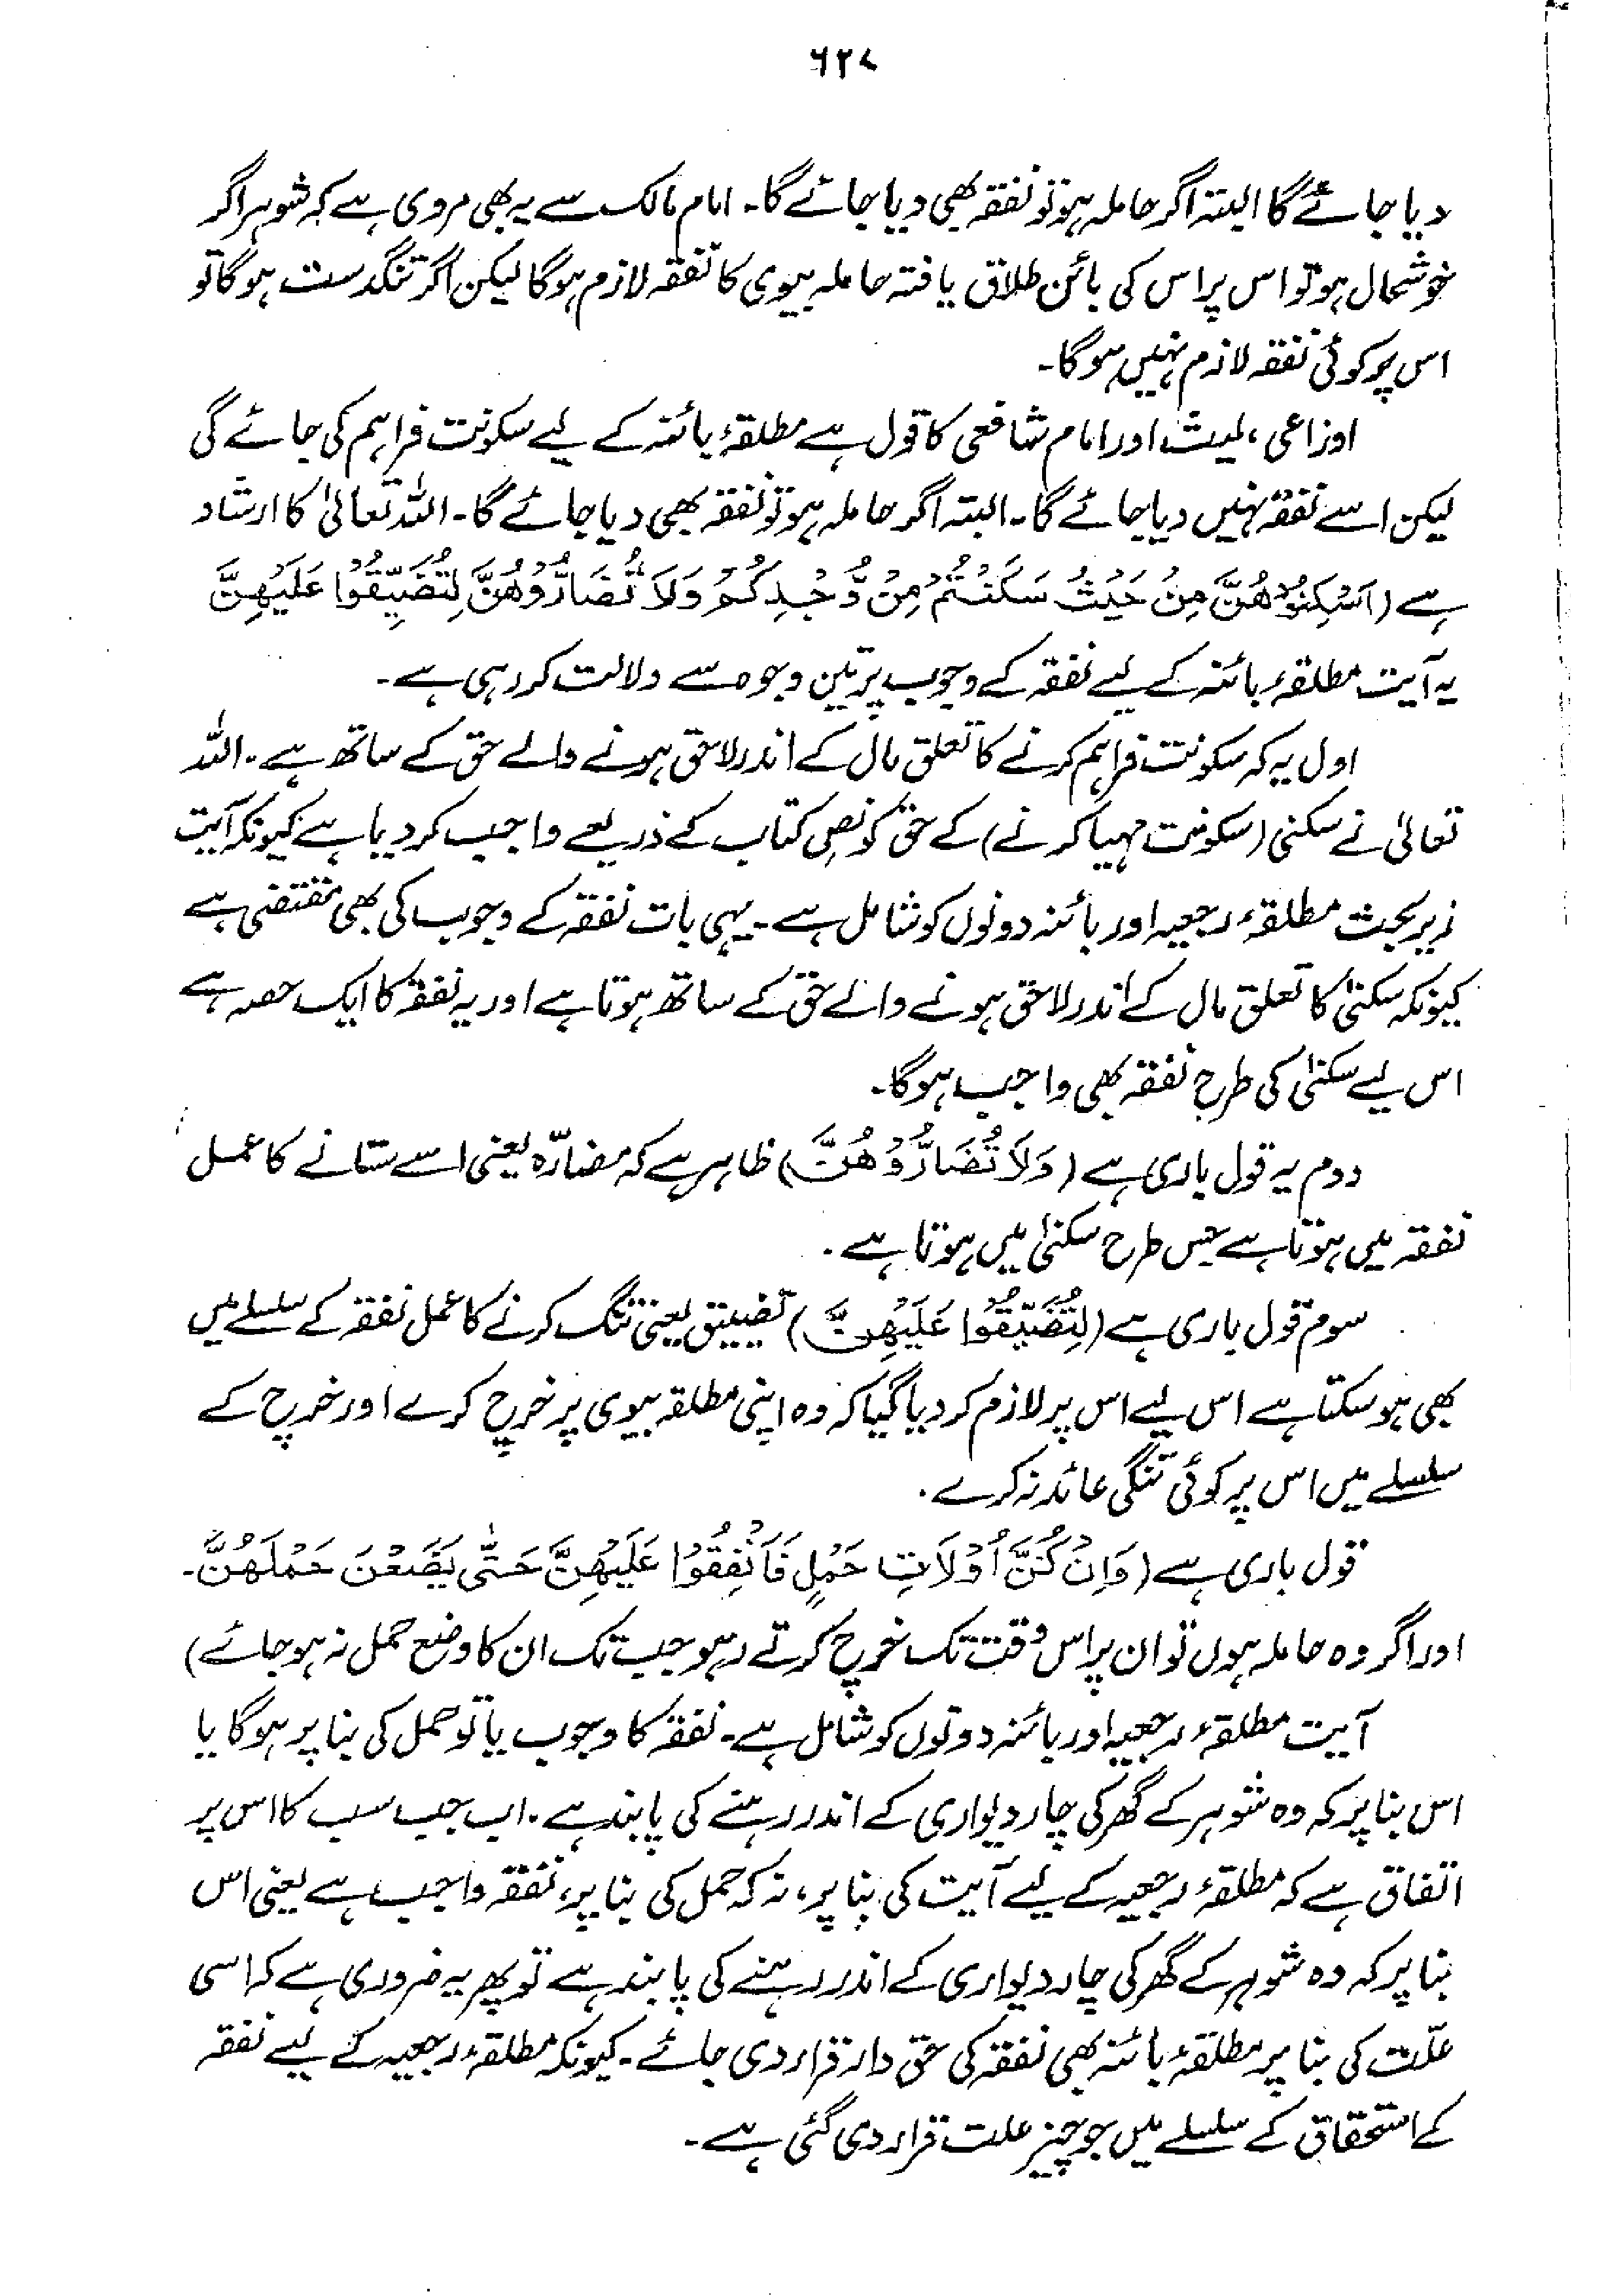 ۶۲۷
دیا جائے گا البتہ اگر حاملہ ہو تو نفقہ بھی دیا جائے گا۔ امام مالک سے یہ بھی مروی ہے کہ شوہر اگر
خوشحال ہو تو اس پر اس کی بائن طلاق یافتہ حاملہ بیوی کا نفقہ لازم ہوگا لیکن اگر تنگدست ہوگا تو
اس پر کوئی نفقہ لازم نہیں ہوگا۔
اوزاعی، لیث اور امام شافعی کا قول ہے مطلقۂ بائنہ کے لیے سکونت فراہم کی جائے گی
لیکن اسے نفقہ نہیں دیا جائے گا۔ البتہ اگر حاملہ ہو تو نفقہ بھی دیا جائے گا۔ اللہ تعالیٰ کا ارشاد
ہے (اَسْكِنُوْهُنَّ مِنْ حَيْثُ سَكَنْتُمْ مِنْ وُّجْدِكُمْ وَلَا تُضَارُّوْهُنَّ لِتُضَيِّقُوْا عَلَيْهِنَّ
یہ آیت مطلقۂ بائنہ کے لیے نفقہ کے وجوب پر تین وجوہ سے دلالت کر رہی ہے۔
اول یہ کہ سکونت فراہم کرنے کا تعلق مال کے اندر لاحق ہونے والے حق کے ساتھ ہے۔ اللہ
تعالیٰ نے سکنیٰ (سکونت مہیا کرنے) کے حق کو نص کتاب کے ذریعے واجب کر دیا ہے کیونکہ آیت
زیر بحث مطلقۂ رجعیہ اور بائنہ دونوں کو شامل ہے۔ یہی بات نفقہ کے وجوب کی بھی مقتضی ہے
کیونکہ سکنیٰ کا تعلق مال کے اندر لاحق ہونے والے حق کے ساتھ ہوتا ہے اور یہ نفقہ کا ایک حصہ ہے
اس لیے سکنیٰ کی طرح نفقہ بھی واجب ہوگا۔
دوم یہ قول باری ہے (وَلَا تُضَارُّوْهُنَّ) ظاہر ہے کہ مضارّہ یعنی اسے ستانے کا عمل
نفقہ میں ہوتا ہے جس طرح سکنیٰ میں ہوتا ہے۔
سوم قول باری ہے (لِتُضَيِّقُوْا عَلَيْهِنَّ) تضییق یعنی تنگ کرنے کا عمل نفقہ کے سلسلے میں
بھی ہو سکتا ہے اس لیے اس پر لازم کر دیا گیا کہ وہ اپنی مطلقہ بیوی پر خرچ کرے اور خرچ کے
سلسلے میں اس پر کوئی تنگی عائد نہ کرے۔
قول باری ہے (وَاِنْ كُنَّ اُوْلَاتِ حَمْلٍ فَاَنْفِقُوْا عَلَيْهِنَّ حَتّٰى يَضَعْنَ حَمْلَهُنَّ۔
اور اگر وہ حاملہ ہوں تو ان پر اس وقت تک خرچ کرتے رہو جب تک ان کا وضع حمل نہ ہو جائے)
آیت مطلقۂ رجعیہ اور بائنہ دونوں کو شامل ہے۔ نفقہ کا وجوب یا تو حمل کی بنا پر ہوگا یا
اس بنا پر کہ وہ شوہر کے گھر کی چار دیواری کے اندر رہنے کی پابند ہے۔ اب جب سب کا اس پر
اتفاق ہے کہ مطلقۂ رجعیہ کے لیے آیت کی بنا پر، نہ کہ حمل کی بنا پر، نفقہ واجب ہے یعنی اس
بنا پر کہ وہ شوہر کے گھر کی چار دیواری کے اندر رہنے کی پابند ہے تو پھر یہ ضروری ہے کہ اسی
علّت کی بنا پر مطلقۂ بائنہ بھی نفقہ کی حق دار قرار دی جائے۔ کیونکہ مطلقۂ رجعیہ کے لیے نفقہ
کے استحقاق کے سلسلے میں جو چیز علت قرار دی گئی ہے۔